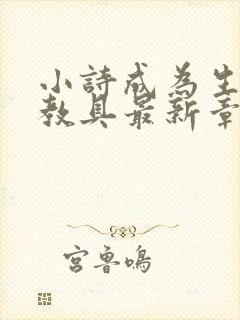 小詩成為生
教具最新章
宮魯鳴